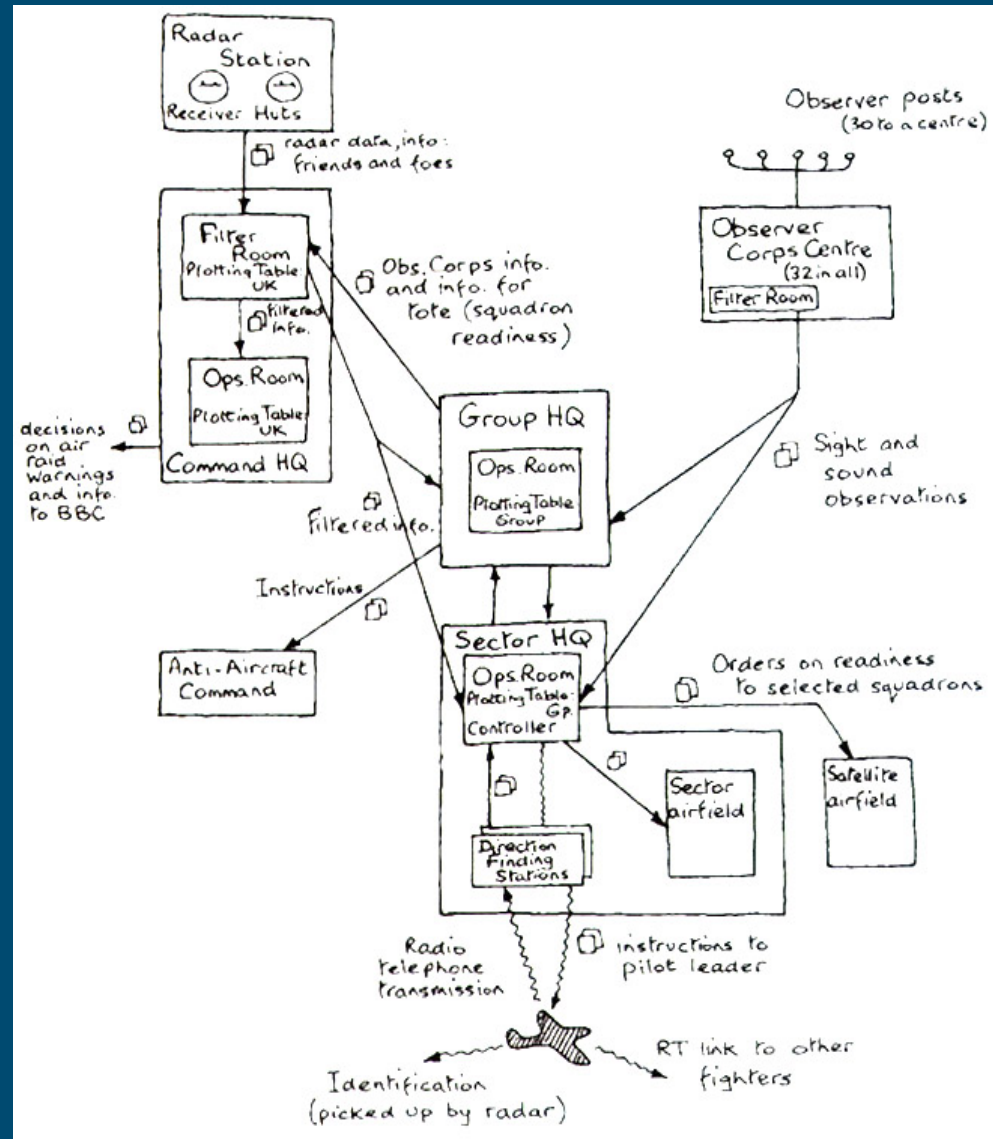 Radar
Station
Receiver Huts
radar data, info:
friends and foes
Observer posts
(30 to a centre)
Filter
Room
Plotting Table
UK
filtered
info.
Ops. Room
Plotting Table
UK
Command HQ
decisions
on air
raid
warnings
and info.
to BBC
Obs. Corps info.
and info. for
tote (squadron
readiness)
Observer
Corps Centre
(32 in all)
Filter Room
Group HQ
Ops. Room
Plotting Table
Group
Sight and
sound
observations
Filtered info.
Instructions
Anti-Aircraft
Command
Sector HQ
Ops. Room
Plotting Table-
Gp.
Controller
Orders on readiness
to selected squadrons
Sector
airfield
Satellite
airfield
Direction
Finding
Stations
Radio
telephone
transmission
instructions to
pilot leader
RT link to other
fighters
Identification
(picked up by radar)